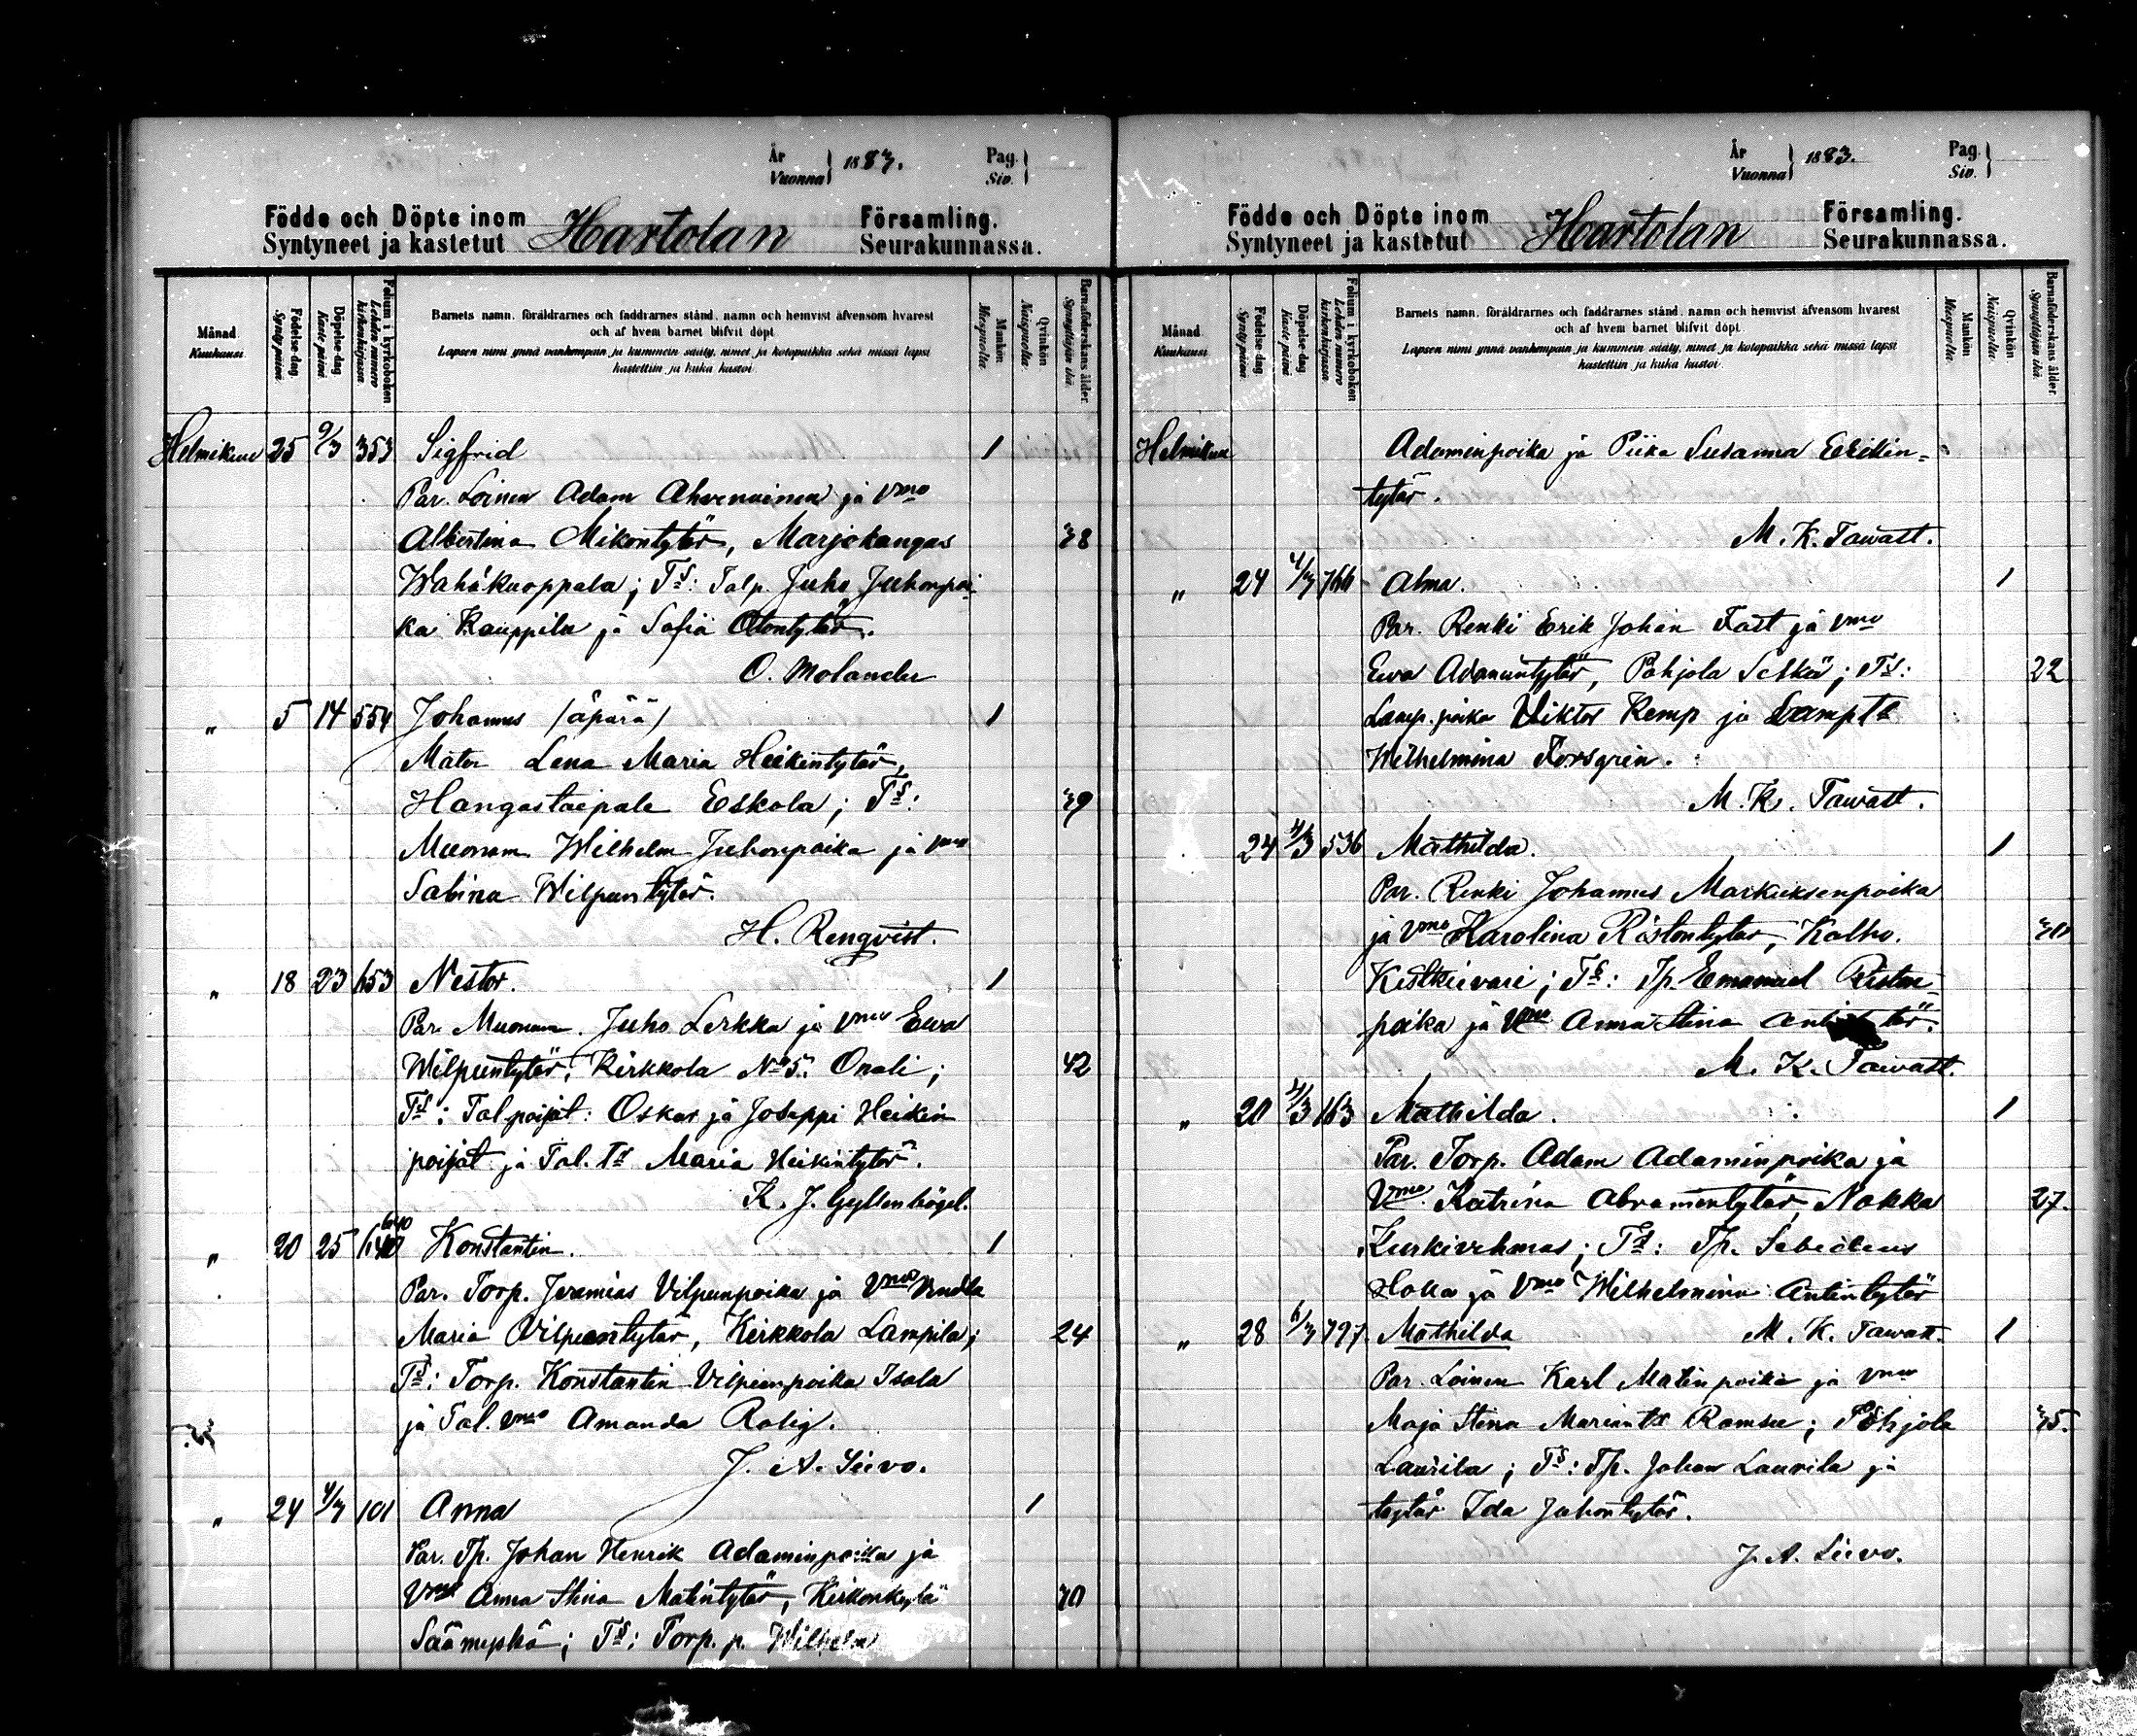 År
Vuonna } 1883.
Pag.
Siv.
Födde och Döpte inom
Syntyneet ja kastetut
Hartolan
Församling.
Seurakunnassa.
Månad.
Kuukausi.
Födelse dag.
Synty päivä.
Döpelse dag
Kaste päivä
Folium i kyrkoboken
Lehden numero kirkonkirjassa.
Barnets namn, föräldrarnes och faddrarnes stånd, namn och hemvist äfvensom hvarest
och af hvem barnet blifvit döpt.
Lapsen nimi ynnä vanhempain ja kummein sääty, nimet ja kotopaikka sekä missä lapsi
kastettiin ja kuka kastoi.
Mankön
Miespuolta.
Qvinkön
Naispuolta.
Barnaföderskans ålder.
Synnyttäjän ikä.
Helmikuu 25 9/3 353 Sigfrid 1
Par. Loinen Adam Ahvenainen ja Vmo
Albertina Mikontytär, Marjokangas 38
Wähäkuoppala; Ts: Talp. Juho Juhonpoi-
ka Kauppila ja Sofia Otontytär.
O. Molander
„ 5 14 554 Johannes (äpärä) 1
Mater Lena Maria Heikintytär,
Hangastaipale Eskola; Ts: 39
Muonam Wilhelm Juhonpoika ja Vmo
Sabina Wilpuntytär.
H. Renqvist.
„ 18 23 653 Nestor. 1
Par. Muonam. Juho Lerkka ja Vmo Ewa
Wilpuntytär, Kirkkola No 5. Onali; 42
Ts: Tal. pojat: Oskar ja Joseppi Heikin
pojat ja Tal. Tr Maria Heikintytär.
K. J. Gyllenbögel.
„ 20 25 640 640 Konstantin. 1
Par. Torp. Jeremias Vilpunpoika ja Vmo Vendla
Maria Vilpuntytär, Kirkkola Lampila; 24
Ts: Torp. Konstantin Vilpunpoika Isala
ja Tal. Vmo Amanda Rolig.
J. A. Siivo.
„ 24 4/3 101 Anna 1
Par. Tp. Johan Henrik Adaminpoika ja
Vmo Anna Stina Matintytär, Kirkonkylä 30
Säämyskä; Ts: Torp. p. Wilhelm
År
Vuonna } 1883.
Pag.
Siv.
Födde och Döpte inom
Syntyneet ja kastetut
Hartolan
Församling.
Seurakunnassa.
Månad.
Kuukausi.
Födelse dag
Synty päivä.
Döpelse dag
Kaste päivä
Folium i kyrkoboken
Lehden numero kirkonkirjassa.
Barnets namn, föräldrarnes och faddrarnes stånd, namn och hemvist äfvensom hvarest
och af hvem barnet blifvit döpt.
Lapsen nimi ynnä vanhempain ja kummein sääty, nimet ja kotopaikka sekä missä lapsi
kastettiin ja kuka kastoi.
Mankön
Miespuolta.
Qvinkön
Naispuolta.
Barnaföderskans ålder.
Synnyttäjän ikä.
Helmikuu Adaminpoika ja Piika Susanna Eerikin-
tytär.
M. K. Tawast.
„ 24 4/3 766 Alma. 1
Par. Renki Erik Johan Fast ja Vmo
Ewa Adamintytär, Pohjola Selkä; Ts: 22
Lamp. poika Viktor Kemp ja Lampts
Wilhelmina Forsgrin.
M. K. Tawast.
24 4/3 536 Mathilda. 1
Par. Renki Johannes Markuksenpoika
ja Vmo Karolina Ristontytär, Kalho.
Kistkiivari; Ts: Tp. Emanuel Riston-
poika ja Vmo Anna Stina
M. K. Tawast.
„ 20 4/3 163 Mathilda. 1
Par. Torp. Adam Adaminpoika ja
Vmo. Katrina Abramintytär, Nokka 27.
Kurkivehmas; Ts: Tp. Sebedeus
Hoka ja Vmo Wilhelmina Antintytär
„ 28 6/3 797. Mathilda M. K. Tawast. 1
Par. Loinen Karl Matinpoika ja Vmo
Maja Stina Ramsu; Pohjola 35.
Laurila; Ts: Tp. Johan Laurila ja
tytär Ida Juhontytär.
J. A. Siivo.